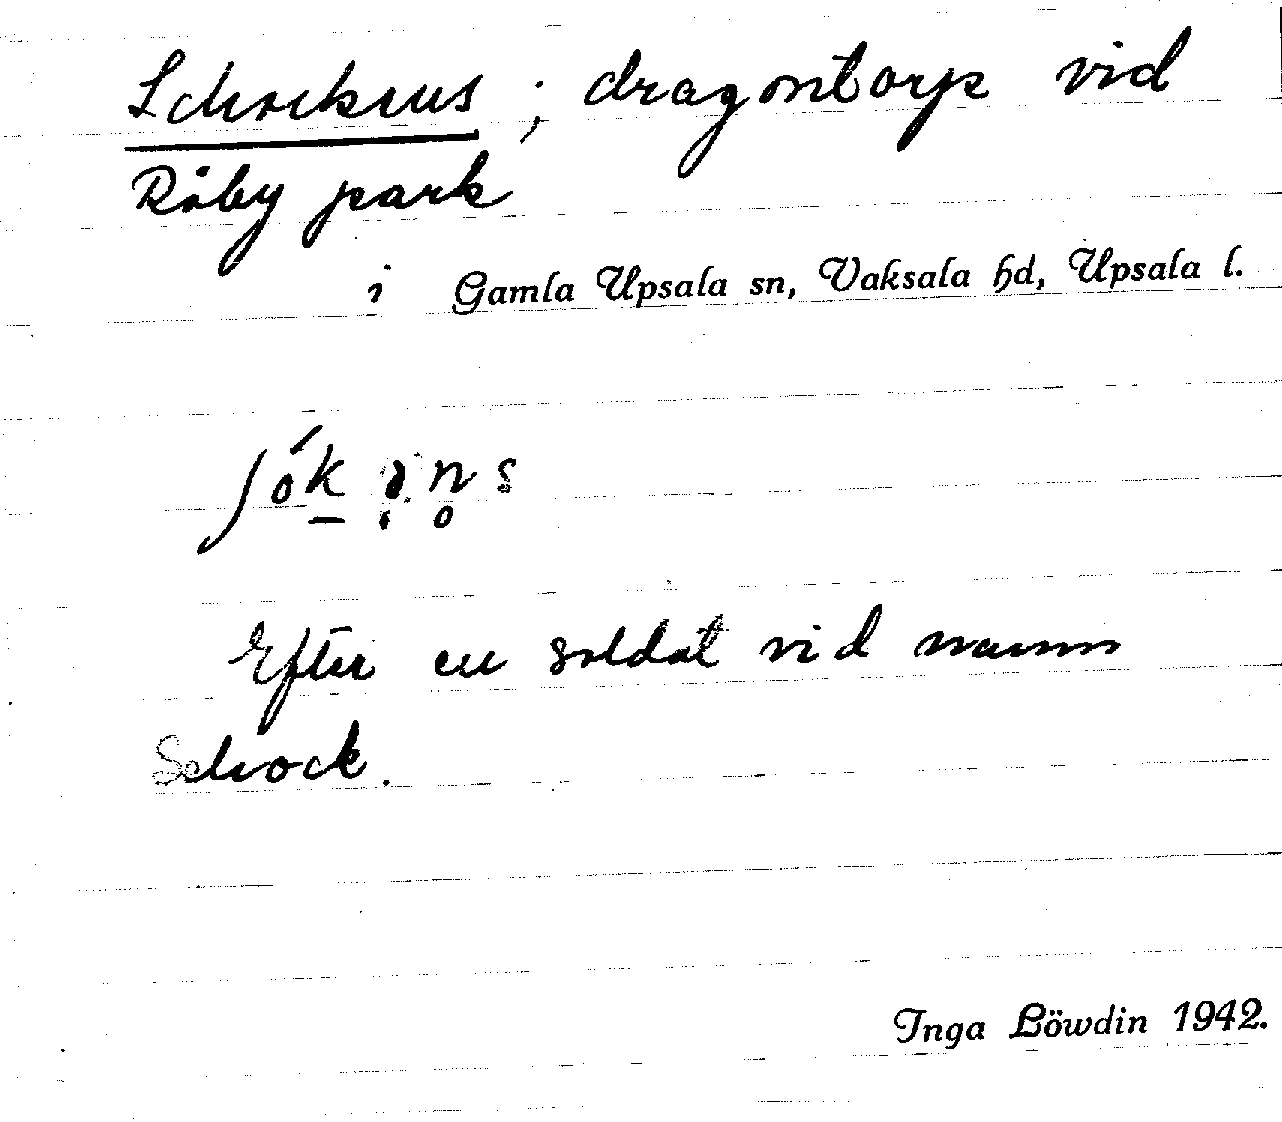 Schockens; dragontorp vid
Råby park
i Gamla Upsala sn, Vaksala hd, Upsala l.
Efter en soldat vid namn
Schock.
Inga Löwdin 1942.